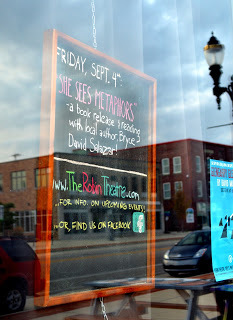 FRIDAY, SEPT. 4TH:
"SHE SEES METAPHORS"
- a book release & reading
with local author, Bryce
David Salazar!
www.TheRobinTheatre.com
...FOR INFO. ON UPCOMING EVENTS!
...OR, FIND US ON FACEBOOK